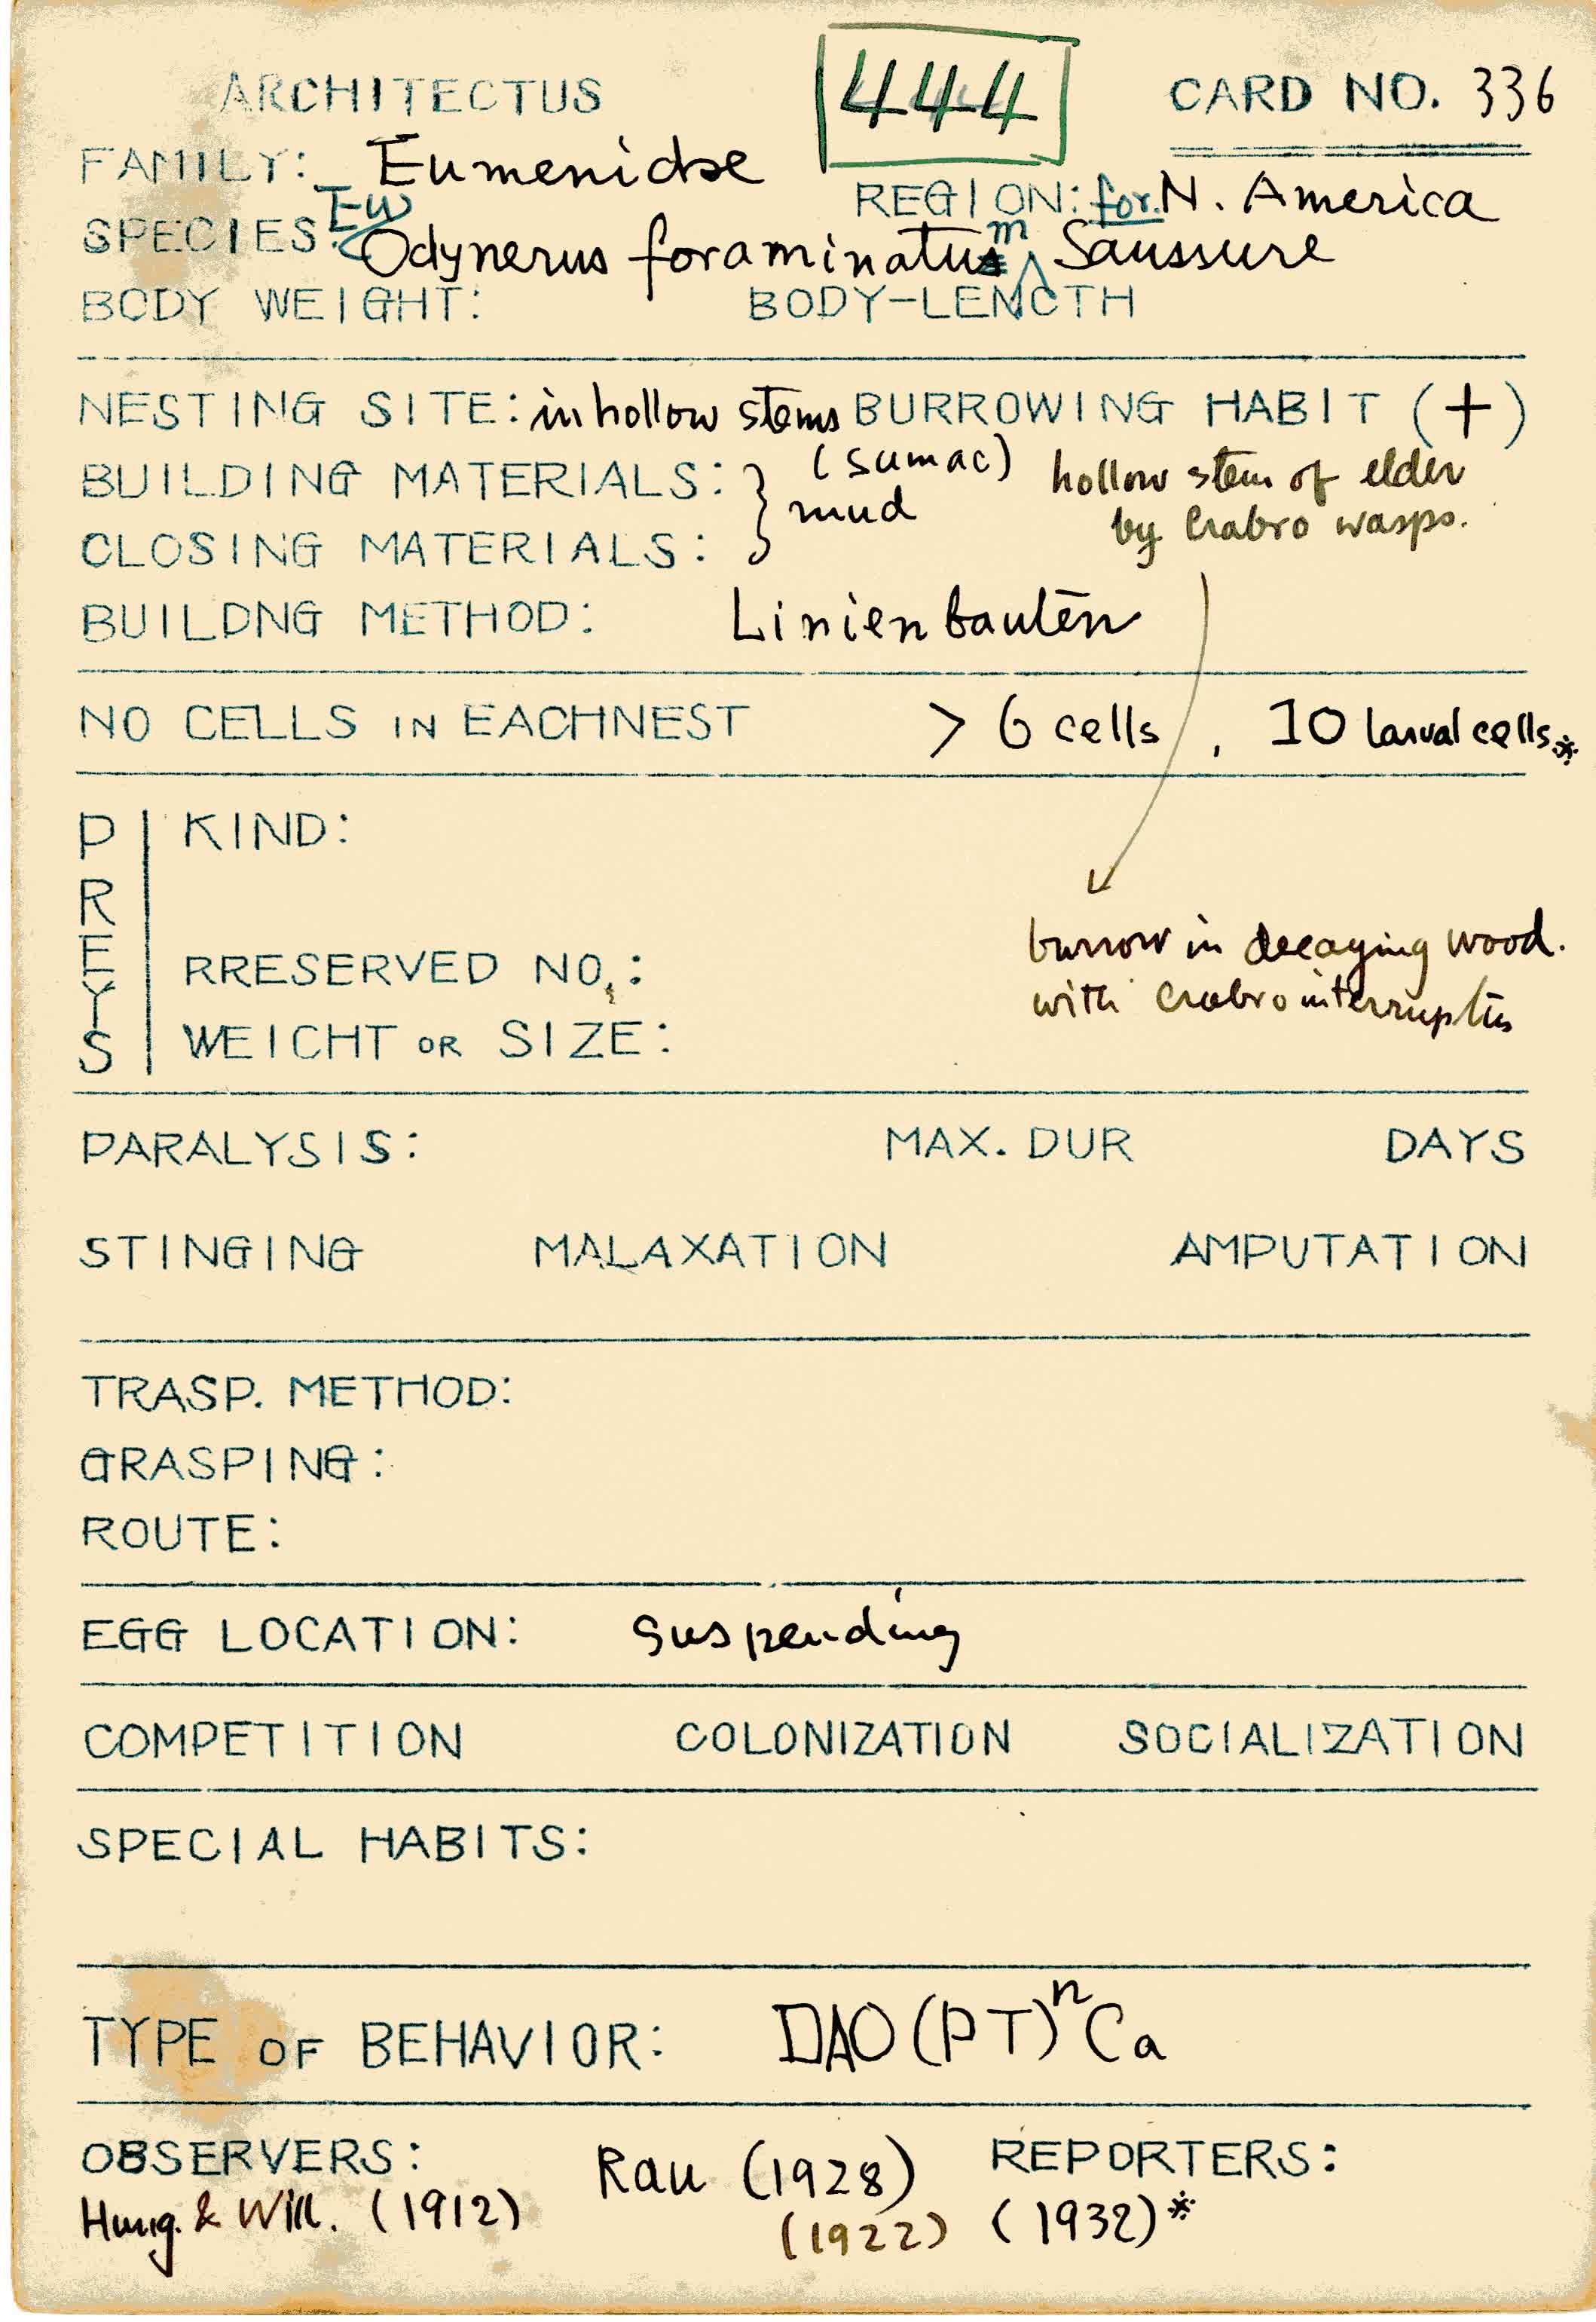 ARCHITECTUS 444 CARD NO. 336
FAMILY: Eumenidae
REGION: for. N. America
SPECIES: Eu Odynerus foraminatus m Saussure
BODY WEIGHT: BODY-LENGTH
NESTING SITE: in hollow stems BURROWING HABIT (+)
(sumac) hollow stem of elder
BUILDING MATERIALS: } mud
by Crabro wasps.
CLOSING MATERIALS:
BUILDNG METHOD: Linienbauten
NO CELLS IN EACHNEST > 6 cells, 10 larval cells*
PREYS KIND:
burrow in decaying wood.
RRESERVED NO.:
with Crabro interruptus
WEIGHT OR SIZE:
PARALYSIS: MAX. DUR DAYS
STINGING MALAXATION AMPUTATION
TRASP. METHOD:
GRASPING:
ROUTE:
EGG LOCATION: suspending
COMPETITION COLONIZATION SOCIALIZATION
SPECIAL HABITS:
TYPE OF BEHAVIOR: DAO(PT)ⁿCa
OBSERVERS: Rau (1928) REPORTERS:
Hung. & Will. (1912) (1922) (1932)*